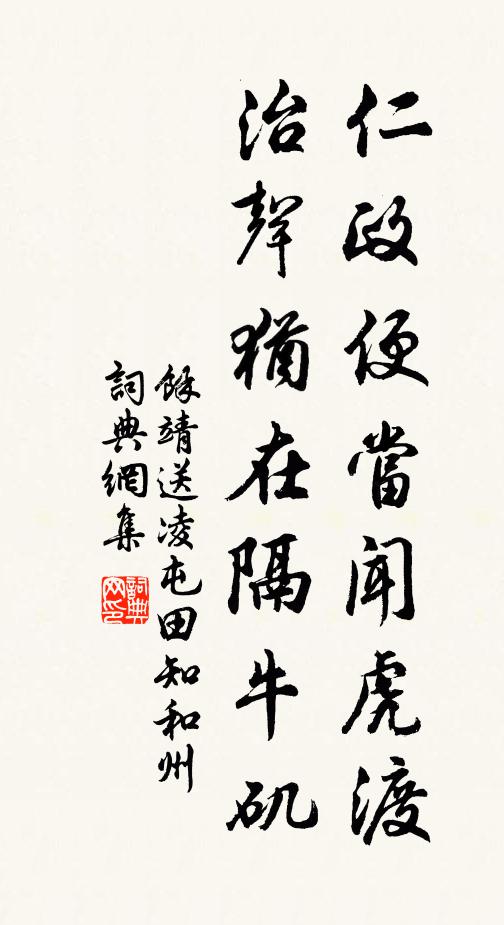 仁政便當聞虎渡
治聲猶在隔牛矶
餘靖送凌屯田知和州
詞典網集
詞典網印